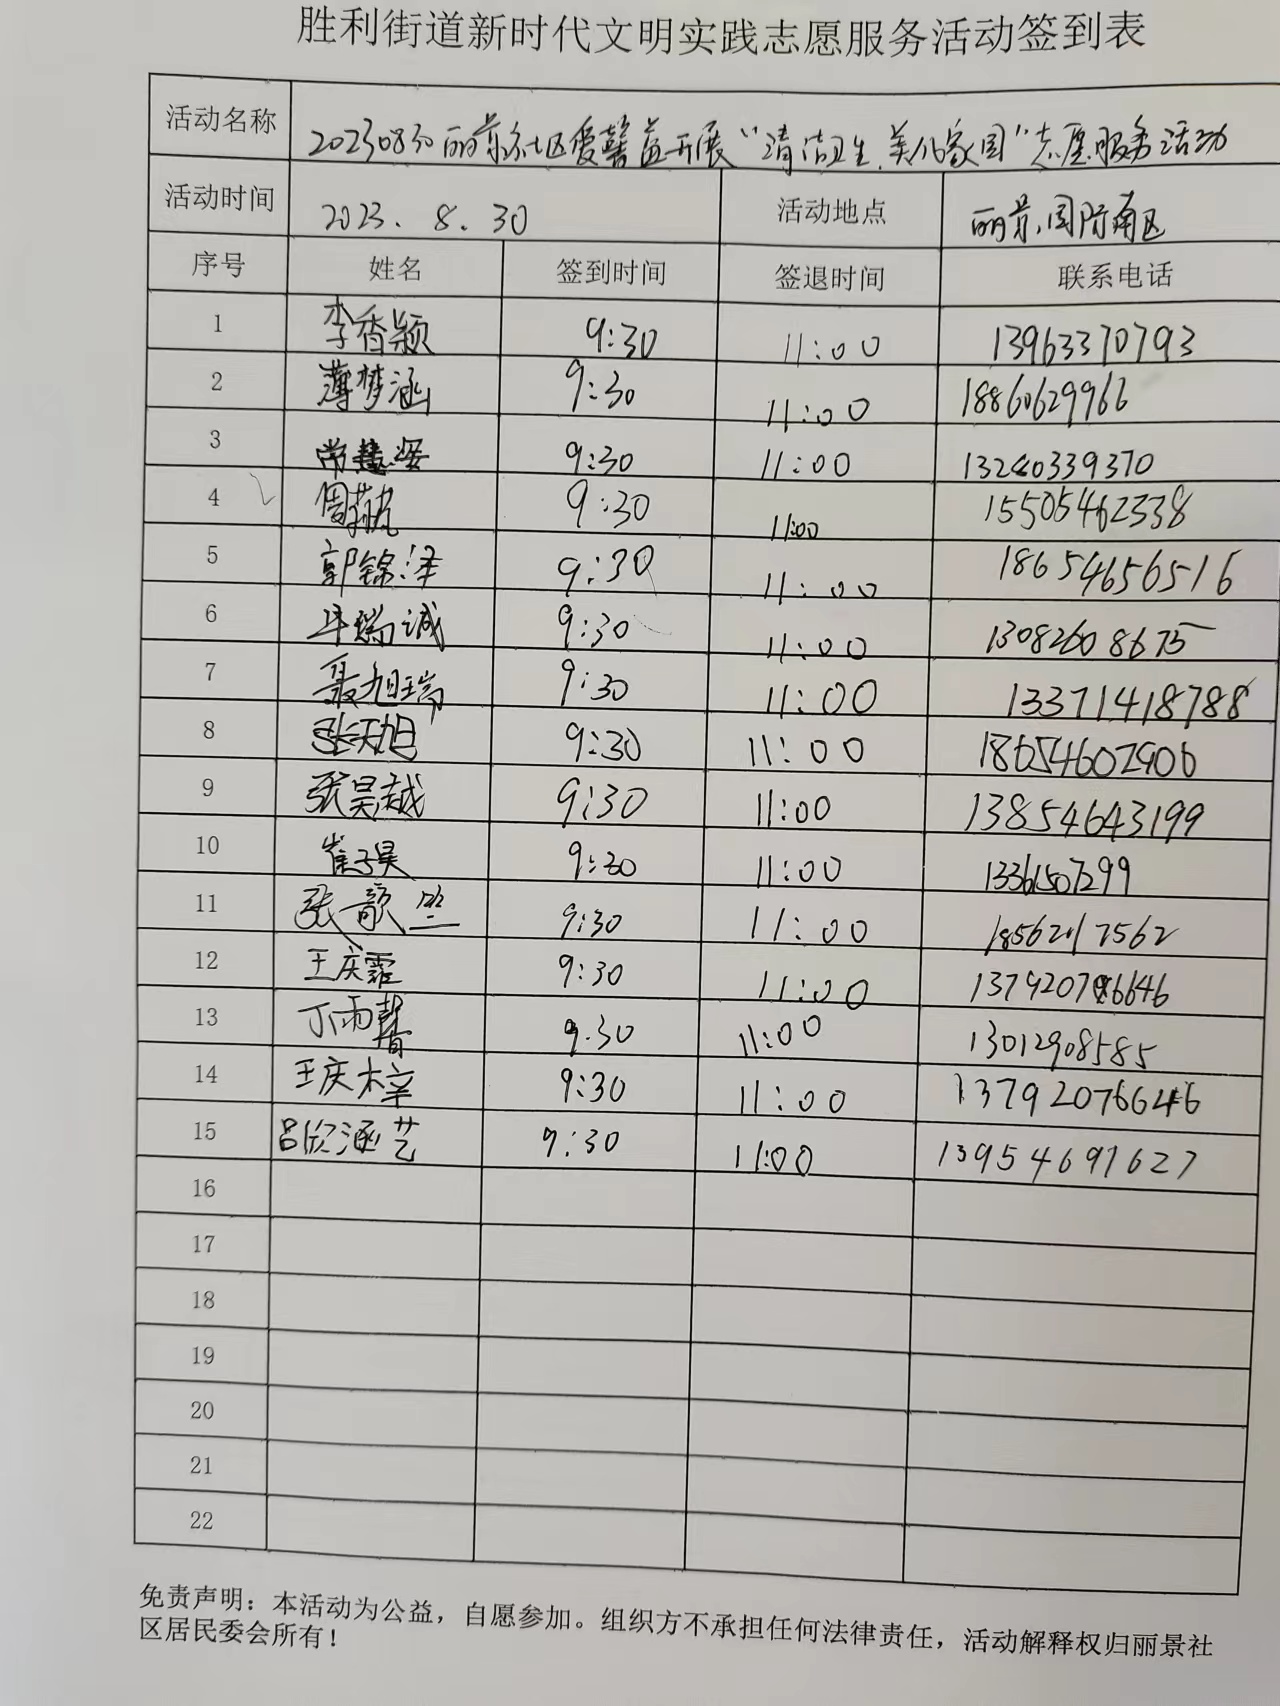 胜利街道新时代文明实践志愿服务活动签到表
活动名称 20230830丽景社区爱馨益开展“清洁卫生、美化家园”志愿服务活动
活动时间 2023.8.30 活动地点 丽景国际南区
序号 姓名 签到时间 签退时间 联系电话
1 李香颖 9:30 11:00 13963370793
2 薄梦涵 9:30 11:00 18860629966
3 9:30 11:00 13240339370
4 9:30 11:00 15505462338
5 郭锦泽 9:30 11:00 18654656516
6 瑞诚 9:30 11:00 13082608675
7 聂旭瑞 9:30 11:00 13371418788
8 张天旭 9:30 11:00 18654602906
9 张昊越 9:30 11:00 13854643199
10 崔子昊 9:30 11:00 13361507299
11 张歆 9:30 11:00 18562017562
12 王庆霏 9:30 11:00 13792076646
13 丁雨馨 9:30 11:00 13012908585
14 王庆梓 9:30 11:00 13792076646
15 吕欣涵艺 9:30 11:00 13954691627
16
17
18
19
20
21
22
免责声明：本活动为公益，自愿参加。组织方不承担任何法律责任，活动解释权归丽景社
区居民委会所有！